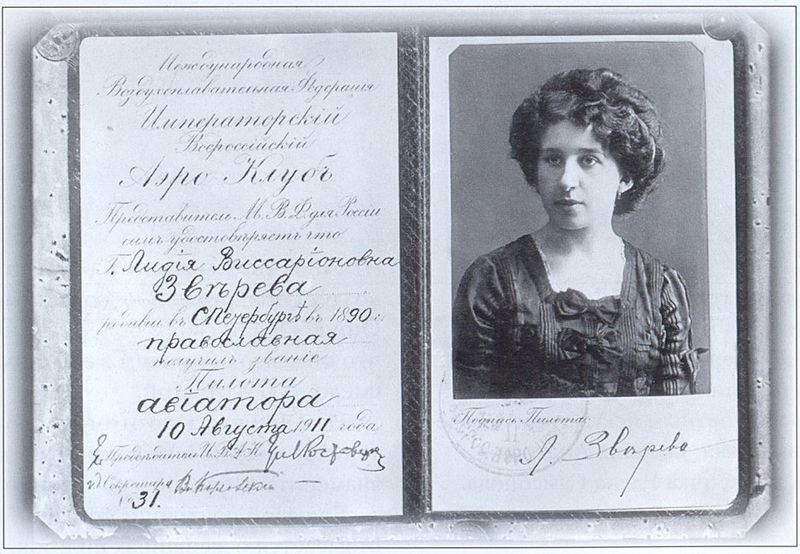 Международная
Воздухоплавательная Ѳедерація
Императорскій
Всероссійскій
Аэро Клубъ
Представитель М. В. Ф для Россіи
симъ удостовѣряетъ что
Г. Лидія Виссаріоновна
Звѣрева
родивш въ СПетербургѣ въ 1890 г.
православная
получилъ званіе
Пилота
авіатора
10 Августа 1911 года
Предсѣдатель И. В. А. К.
Секретарь
№ 31.
Подпись Пилота:
Л. Звѣрева